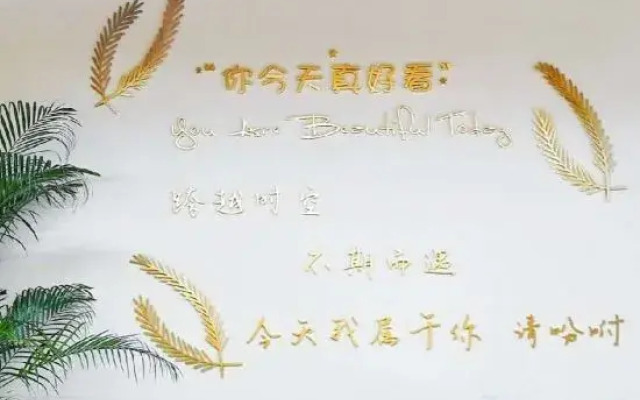 “你今天真好看”
You are Beautiful Today
跨越时空
不期而遇
今天我属于你 请吩咐